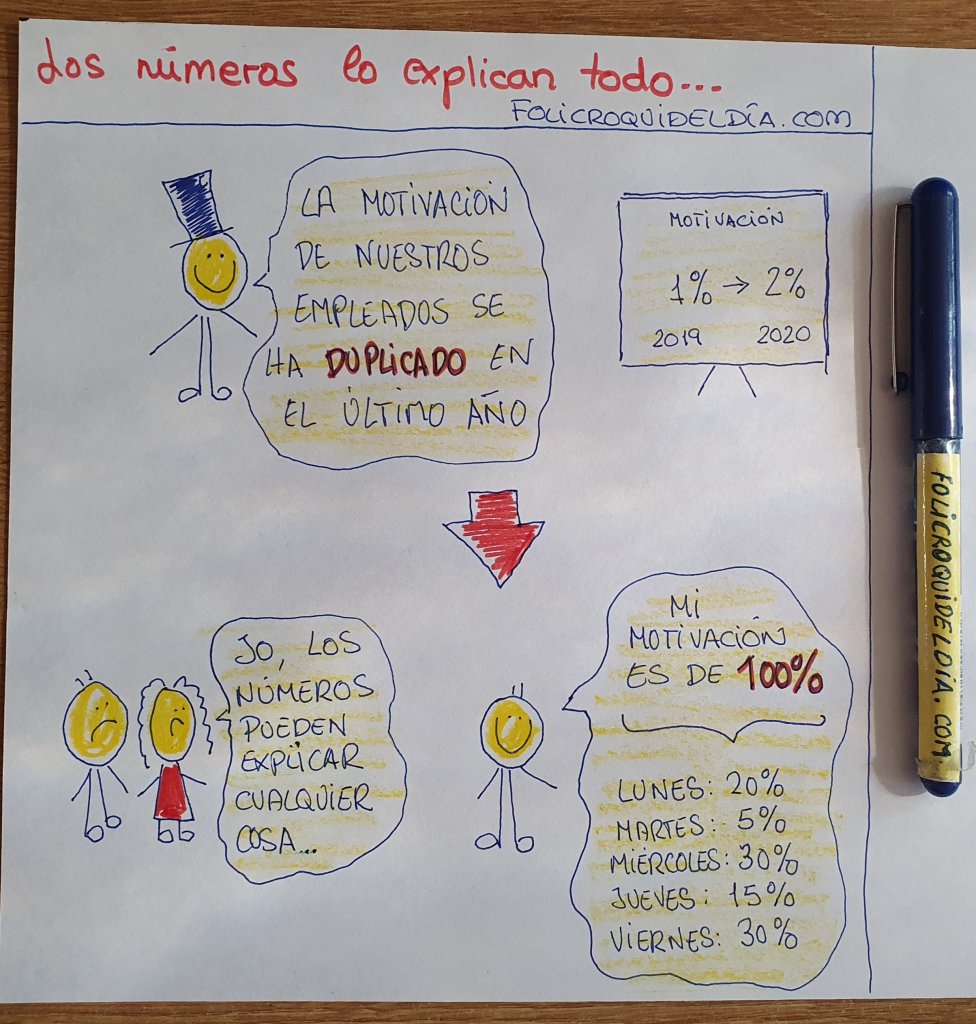 Los números lo explican todo...
FOLICROQUIDELDÍA.COM
LA MOTIVACIÓN
DE NUESTROS
EMPLEADOS SE
HA DUPLICADO EN
EL ÚLTIMO AÑO
MOTIVACIÓN
1% → 2%
2019 2020
JO, LOS
NÚMEROS
PUEDEN
EXPLICAR
CUALQUIER
COSA...
MI
MOTIVACIÓN
ES DE 100%
LUNES: 20%
MARTES: 5%
MIÉRCOLES: 30%
JUEVES: 15%
VIERNES: 30%
FOLICROQUIDELDIA.COM